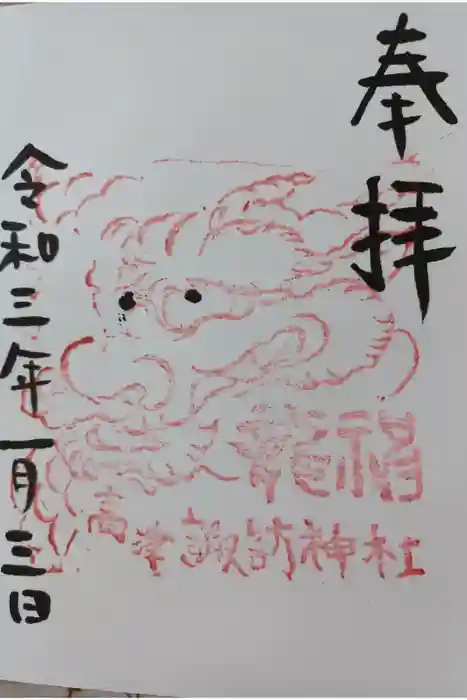 奉拝
福龍
高津諏訪神社
令和三年一月三日